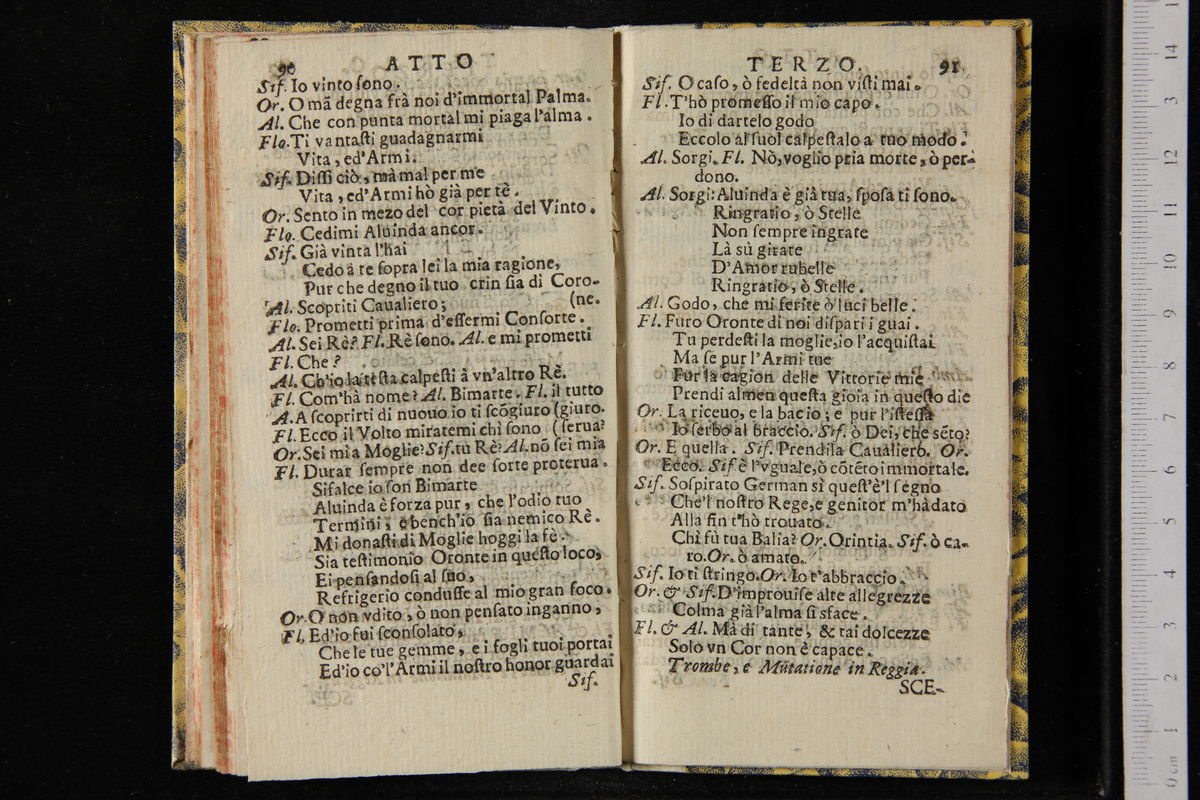 90 ATTO
Sif. Io vinto ſono.
Or. O mã degna frà noi d'immortal Palma.
Al. Che con punta mortal mi piaga l'alma.
Flo. Ti vantaſti guadagnarmi
Vita, ed'Armi.
Sif. Diſſi ciò, mà mal per me
Vita, ed'Armi hò già per tè.
Or. Sento in mezo del cor pietà del Vinto.
Flo. Cedimi Aluinda ancor.
Sif. Già vinta l'hai
Cedo à te ſopra lei la mia ragione,
Pur che degno il tuo crin ſia di Coro-
Al. Scopriti Caualiero; (ne.
Flo. Prometti prima d'eſſermi Conſorte.
Al. Sei Rè? Fl. Rè ſono. Al. e mi prometti
Fl. Che?
Al. Ch'io la teſta calpeſti à vn'altro Rè.
Fl. Com'hà nome? Al. Bimarte. Fl. il tutto
A. A ſcoprirti di nuouo io ti ſcõgiuro (giuro.
Fl. Ecco il Volto miratemi chi ſono (ſerua?
Or. Sei mia Moglie? Sif. tu Rè? Al. nõ ſei mia
Fl. Durar ſempre non dee ſorte proterua.
Sifalce io ſon Bimarte
Aluinda è forza pur, che l'odio tuo
Termini, e bench'io ſia nemico Rè.
Mi donaſti di Moglie hoggi la fè.
Sia teſtimonio Oronte in queſto loco,
Ei penſandoſi al ſuo,
Refrigerio conduſſe al mio gran foco.
Or. O non vdito, ò non penſato inganno,
Fl. Ed'io fui ſconſolato,
Che le tue gemme, e i fogli tuoi portai
Ed'io co'l'Armi il noſtro honor guardai
Sif.
TERZO. 91
Sif. O caſo, ò fedeltà non viſti mai.
Fl. T'hò promeſſo il mio capo.
Io di dartelo godo
Eccolo al ſuol calpeſtalo a tuo modo.
Al. Sorgi. Fl. Nò, voglio pria morte, ò per-
dono.
Al. Sorgi: Aluinda è già tua, ſpoſa ti ſono.
Ringratio, ò Stelle
Non ſempre ingrate
Là sù girate
D'Amor rubelle
Ringratio, ò Stelle.
Al. Godo, che mi ferite ò luci belle.
Fl. Furo Oronte di noi diſpari i guai.
Tu perdeſti la moglie, io l'acquiſtai
Ma ſe pur l'Armi tue
Fur la cagion delle Vittorie mie
Prendi almen queſta gioia in queſto die
Or. La riceuo, e la bacio; e pur l'iſteſſa
Io ſerbo al braccio. Sif. ò Dei, che sẽto?
Or. E quella. Sif. Prendila Caualiero. Or.
Ecco. Sif è l'vguale, ò cõtẽto immortale.
Sif. Soſpirato German sì queſt'è'l ſegno
Che'l noſtro Rege, e genitor m'hà dato
Alla fin t'hò trouato.
Chi fù tua Balia? Or. Orintia. Sif. ò ca-
ro. Or. ò amato.
Sif. Io ti ſtringo. Or. Io t'abbraccio.
Or. & Sif. D'improuiſe alte allegrezze
Colma già l'alma ſi sface.
Fl. & Al. Mà di tante, & tai dolcezze
Solo vn Cor non è capace.
Trombe, e Mutatione in Reggia.
SCE-